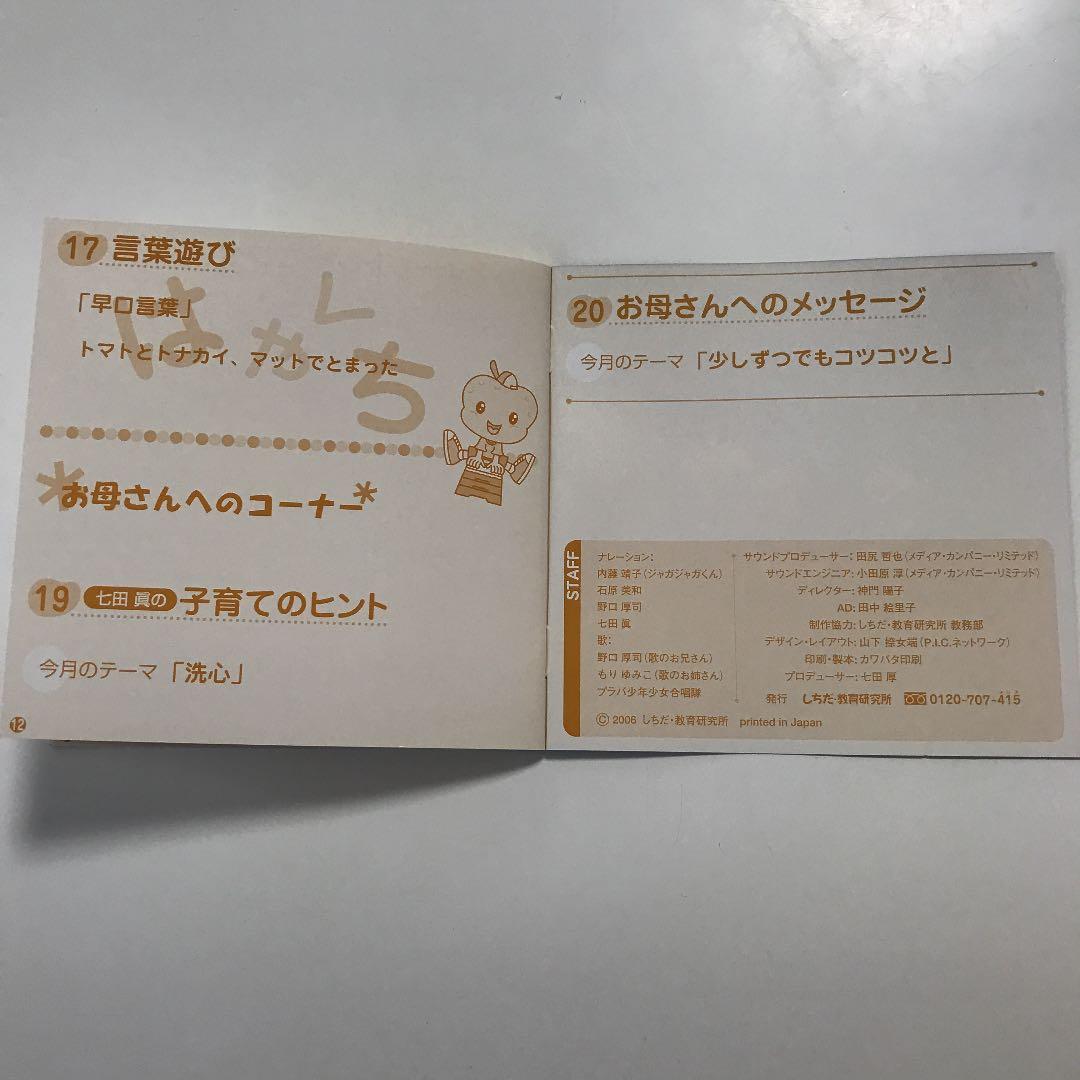 17 言葉遊び
「早口言葉」
トマトとトナカイ、マットでとまった
は よ か し ち
お母さんへのコーナー
19 七田 眞の 子育てのヒント
今月のテーマ 「洗心」
12
20 お母さんへのメッセージ
今月のテーマ 「少しずつでもコツコツと」
STAFF
ナレーション:
内藤 靖子(ジャガジャガくん)
石原 美和
野口 厚司
七田 眞
歌:
野口 厚司(歌のお兄さん)
もり ゆみこ(歌のお姉さん)
プラバ少年少女合唱隊
サウンドプロデューサー: 田尻 哲也(メディア・カンパニー・リミテッド)
サウンドエンジニア: 小田原 淳(メディア・カンパニー・リミテッド)
ディレクター: 神門 陽子
AD: 田中 絵里子
制作協力: しちだ・教育研究所 教務部
デザイン・レイアウト: 山下 (P.I.C.ネットワーク)
印刷・製本: カワバタ印刷
プロデューサー: 七田 厚
発行 しちだ・教育研究所 0120-707-415
© 2006 しちだ・教育研究所 printed in Japan